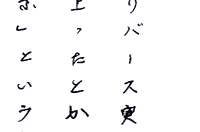 リバース実
上ったとか
な」という